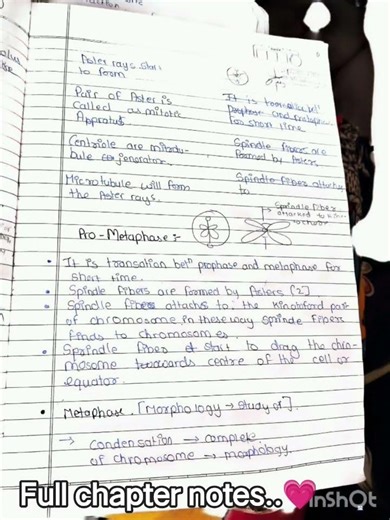 Aster rays start
to form
Pair of Aster is
called as mitotic
Apparatus
It is transation bet
Prophase and metaphase
for short time
Spindle fibers are
formed by Asters
Spindle fibers attaches
to
Microtubule will form
the Aster rays.
Spindle Fiber
attached to
Pro-Metaphase:-
It is transation betⁿ prophase and metaphase for
short time.
Spindle fibers are formed by Asters (2)
Spindle fibers attaches to the
of chromosome in these way spindle fibers
finds to chromosomes.
Sprindle fiber start to drag the chro-
mosome towards centre of the cell or
equator.
Metaphase. [Morphology → Study of].
→ Condensation → complete
of chromosome → morphology.
Full chapter notes..💗
InShOt